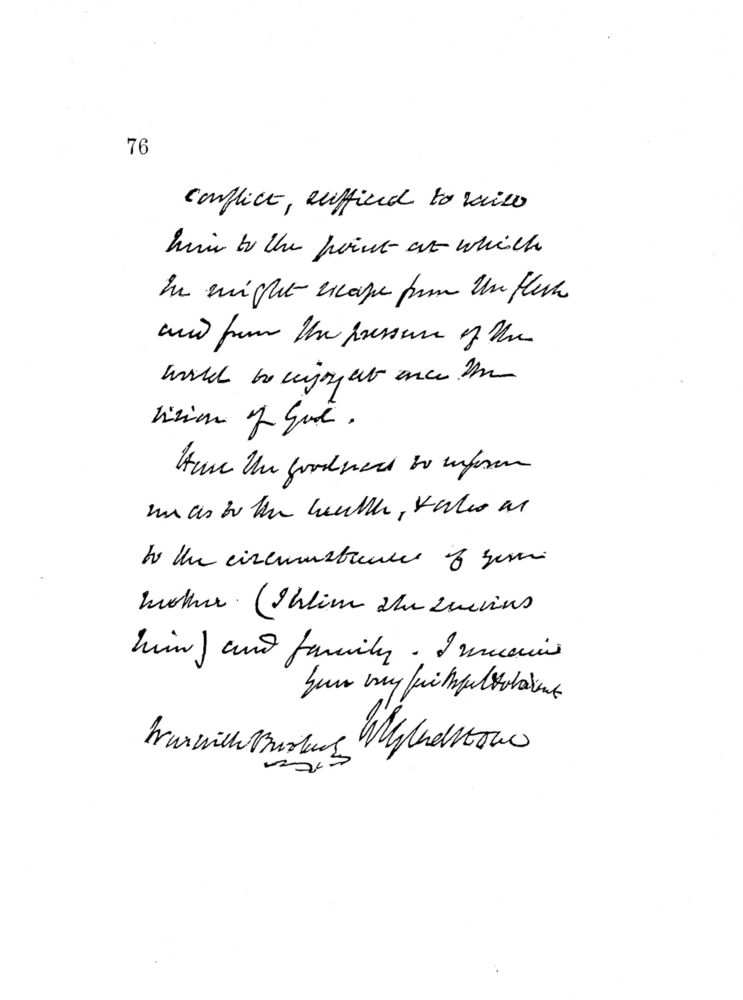 76
conflict, sufficed to raise
him to the point at which
he might escape from the flesh
and from the pressure of the
world to enjoy at once the
vision of God.
Have the goodness to inform
me as to the health, & also as
to the circumstances of your
mother (I believe she survives
him) and family. I remain
your very faithful & obedient
W E Gladstone
Warwick Brookes